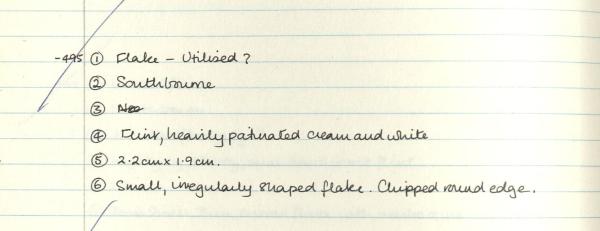 -495 ① Flake - Utilised?
② Southbourne
③ Neo
④ Flint, heavily patinated cream and white
⑤ 2.2cm x 1.9cm.
⑥ Small, irregularly shaped flake. Chipped round edge.